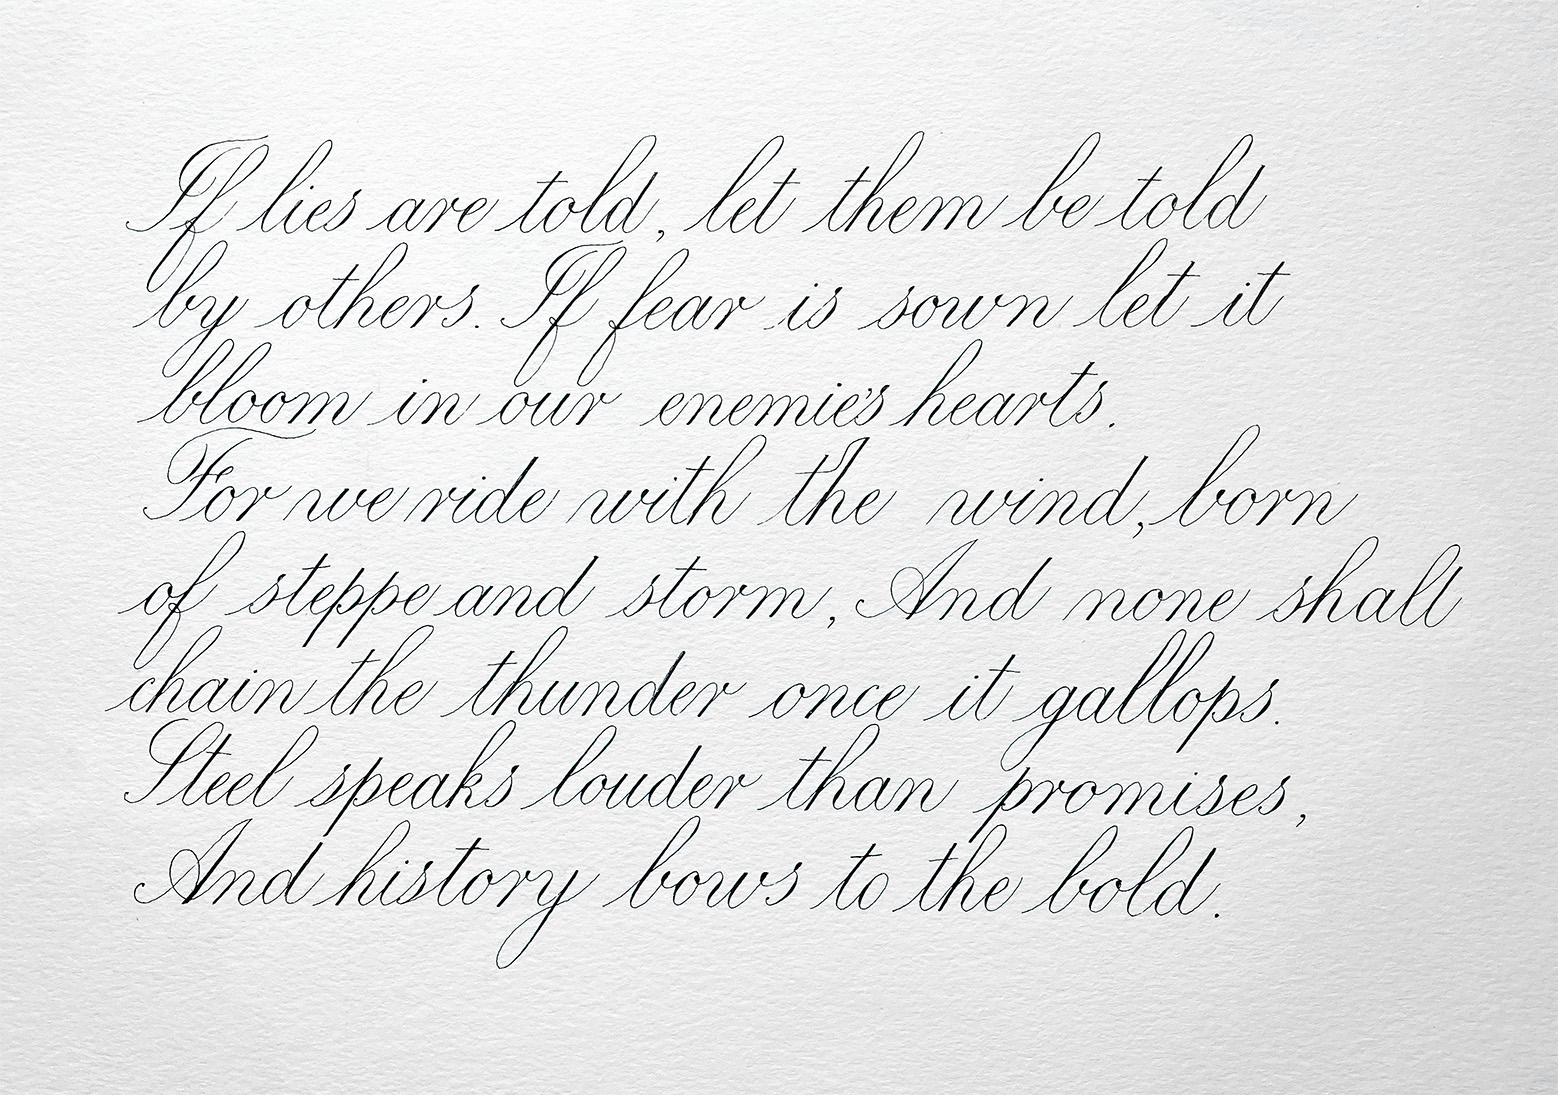 If lies are told, let them be told
by others. If fear is sown let it
bloom in our enemie's hearts.
For we ride with the wind, born
of steppe and storm, And none shall
chain the thunder once it gallops.
Steel speaks louder than promises,
And history bows to the bold.